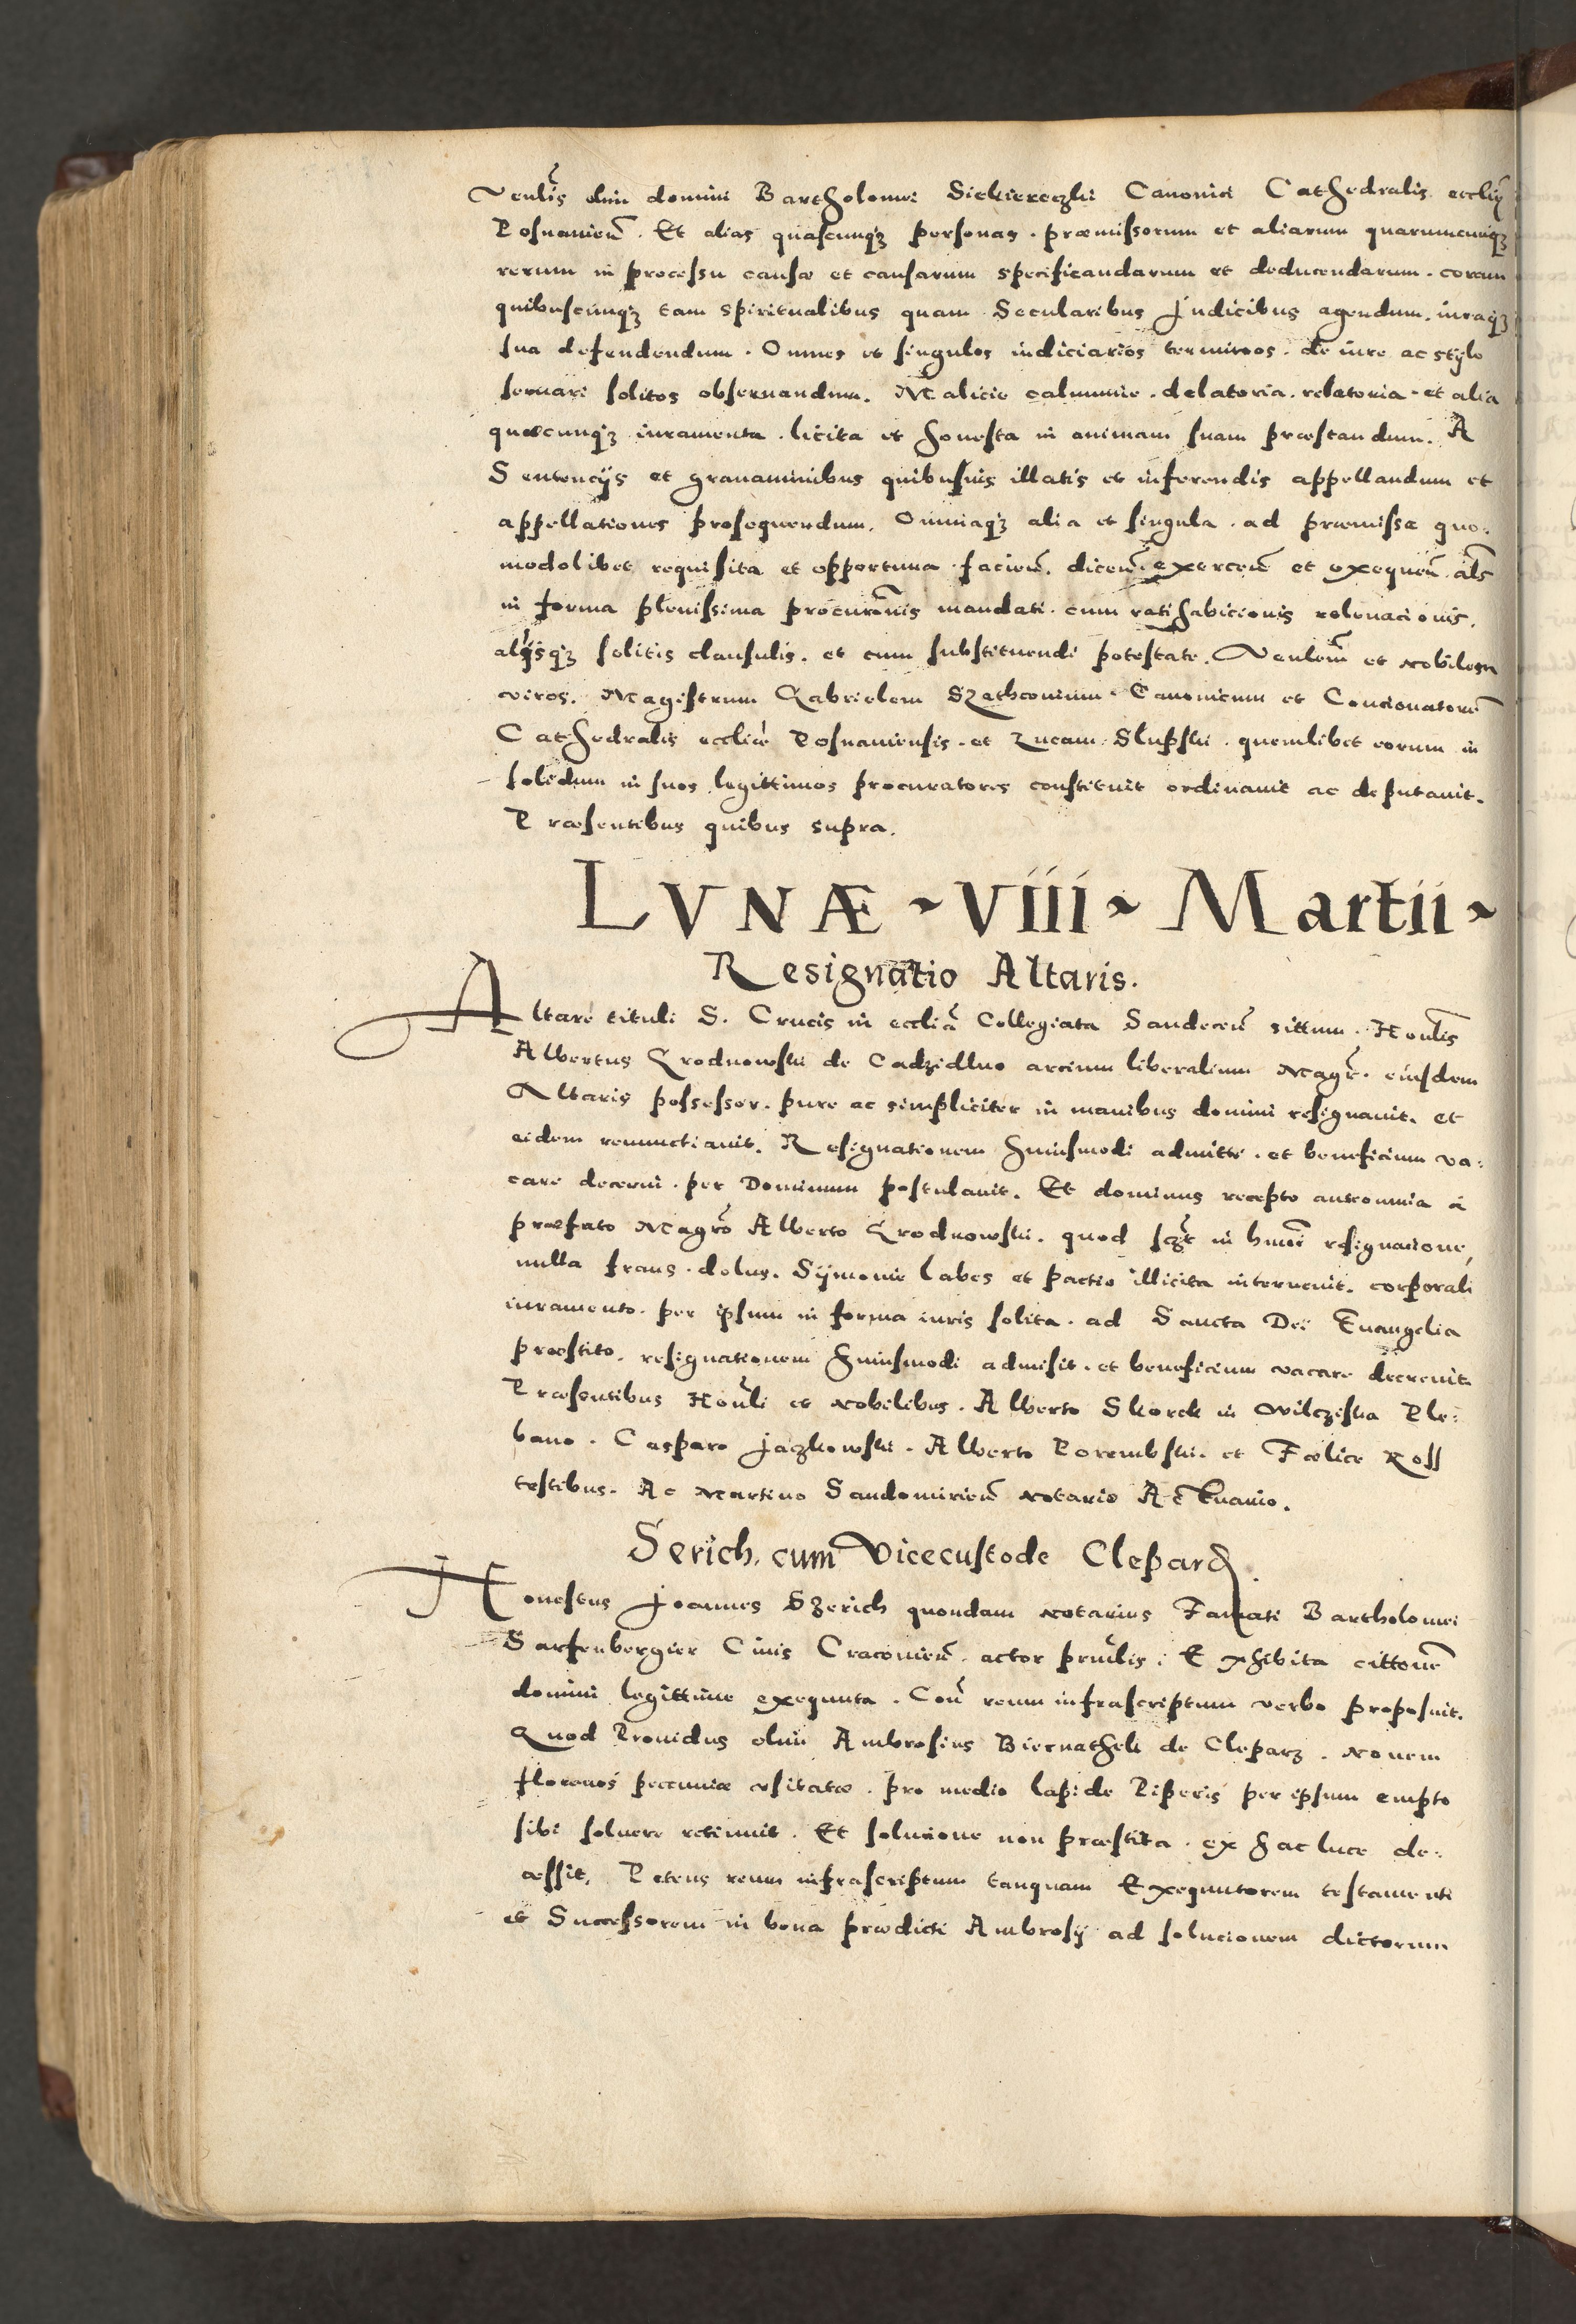 Venlis olim domini Bartholomei Siekiereczkii Canonici Cathedralis eccliae
Posnanien. Et alias quascunq; personas. praemissorum et aliarum quarumcunq;
rerum in processu causae et causarum specificandarum et deducendarum. coram
quibuscunq; tam spiritualibus quam Secularibus Judicibus agendum. iuraq;
sua defendendum. Omnes et singulos iudiciarios terminos. de iure ac stylo
seruari solitos obseruandum. Malicie calumnie. delatoria. relatoria. et alia
quaecunq; iuramenta. licita et honesta in animam suam praestandum. A
Sentencijs et grauaminibus quibusuis illatis et inferendis appellandum et
appellationes prosequendum. Omniaq; alia et singula. ad praemissa quo:
modolibet requisita et opportuna facien. dicen. exercen et exequen. als
in forma plenissima procurois mandati. cum ratihabicionis releuacionis.
alijsq; solitis clausulis. et cum substituendi potestate. Venlem et Nobilem
viros. Magistrum Gabrielem Szathconium. Canonicum et Concionatorem
Cathedralis eccliae Posnaniensis. et Lucam Slupskii. quemlibet eorum in
solidum in suos legittimos procuratores constituit ordinauit ac deputauit.
Praesentibus quibus supra.
LVNÆ ~ Viii ~ Martii ~
Resignatio Altaris.
Altare tituli S. Crucis in ecclia Collegiata Sandecen sittum. Honlis
Albertus Grodnowskii de Cadzidlno arcium liberalium Magr. eiusdem
Altaris possessor. pure ac simpliciter in manibus domini resignauit. et
eidem renunctiauit. Resignationem huiusmodi admitti. et beneficium va:
care decerni. per Dominum postulauit. Et dominus recepto anteomnia à
praefato Magro Alberto Grodnowskii. quod sczt in hmoi resignacione,
nulla fraus. dolus. Sijmonie labes et pactio illicita interuenit. corporali
iuramento. per ipsum in forma iuris solita. ad Sancta Dei Euangelia
praestito. resignationem huiusmodi admisit. et beneficium vacare decreuit.
Praesentibus Honli et Nobilibus. Alberto Skorek in Wilcziska Ple:
bano. Casparo Jaczkowskii. Alberto Porembskii. et Foelice Ross
testibus. Ac Martino Sandomirien Notario Actuario.
Serich. cum Vicecustode Clepard.
Honestus Joannes Szerich quondam Notarius Famati Bartholomei
Sarfenbergier Ciuis Cracouien. actor prncilis. Exhibita cittone
domini legittime exequuta. Con reum infrascriptum verbo proposuit.
Quod Prouidus olim Ambrosius Biernathek de Cleparz. Nouem
florenos pecuniae vsitatae. pro medio lapide Piperis per ipsum empto
sibi soluere retinuit. Et solucione non praestita. ex hac luce de:
cessit. Petens reum infrascriptum tanquam Exequutorem testamenti
et Successorem in bona praedicti Ambrosij ad solucionem dictorum